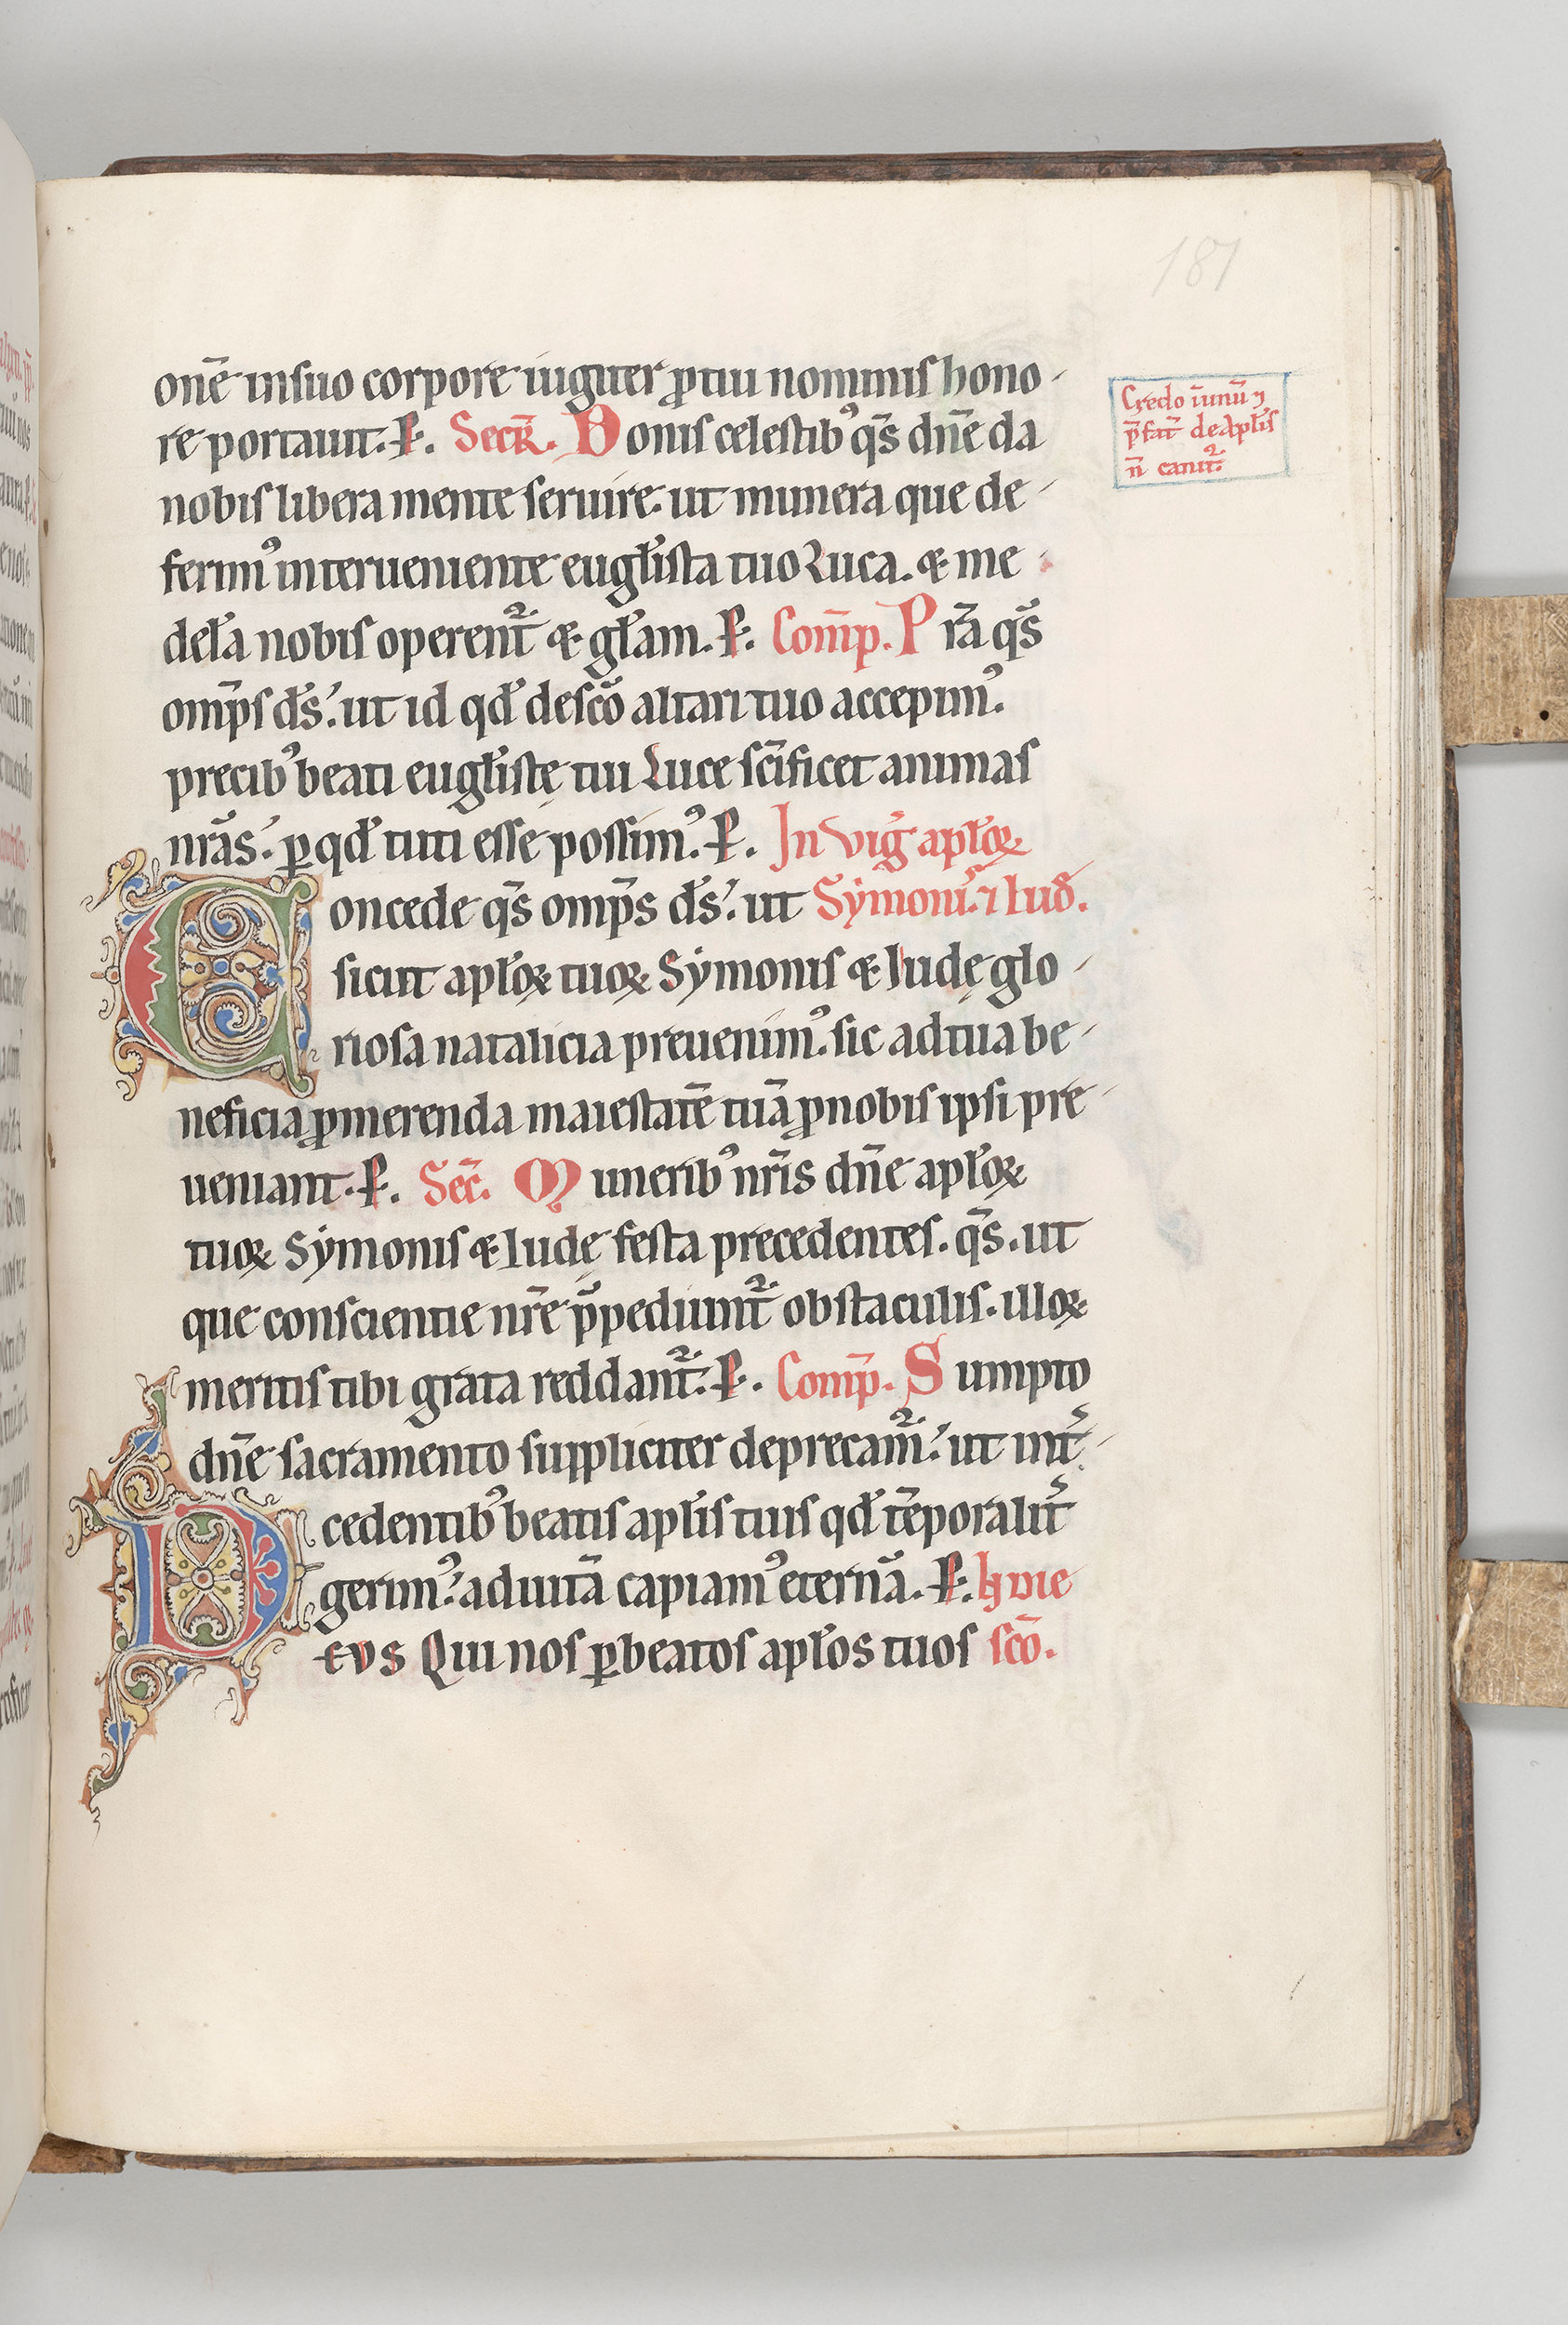 181
onē in suo corpore iugiter ꝓ tui nominis hono-
re portauit. P̵. Secr̄. Donis celestibꝰ qs̄ dn̄e da
nobis libera mente seruire. ut munera que de-
ferimꝰ interueniente eugl̄ista tuo Luca. & me-
del̄a nobis operent᷑ & gl̄am. P̵. Com̄p. Pr̄a qs̄
omp̄s ds̄. ut id qd̄ de sc̄o altari tuo accepimꝰ.
precibꝰ beati eugl̄istę tui Luce sc̄ificet animas
nr̄as. ꝑ qd̄ tuti esse possimꝰ. P̵. In viḡ apl̄oꝝ
Concede qs̄ omp̄s ds̄. ut Sẏmonis̄. ⁊ Iud̄.
sicut apl̄oꝝ tuoꝝ Sẏmonis & Iudę glo-
riosa natalicia preuenimꝰ. sic ad tua be-
neficia ꝓmerenda maiestatē tuā ꝓ nobis ipsi pre-
ueniant. P̵. Sec̄. Muneribꝰ nr̄is dn̄e apl̄oꝝ
tuoꝝ Sẏmonis & Iudę festa precedentes. qs̄. ut
que conscientie nr̄e p̄pediunt᷑ obstaculis. illoꝝ
meritis tibi grata reddant᷑. P̵. Com̄p. Sumpto
dn̄e sacramento suppliciter deprecam᷑. ut int̄-
cedentibꝰ beatis apl̄is tuis qd̄ tēporalit̄
gerimꝰ. ad uitā capiamꝰ eternā. P̵. In die
DEVS Qui nos ꝑ beatos apl̄os tuos sc̄o.
Credo in̄ unū ⁊
p̄fat̄ de Apl̄is
n̄ canit᷑.